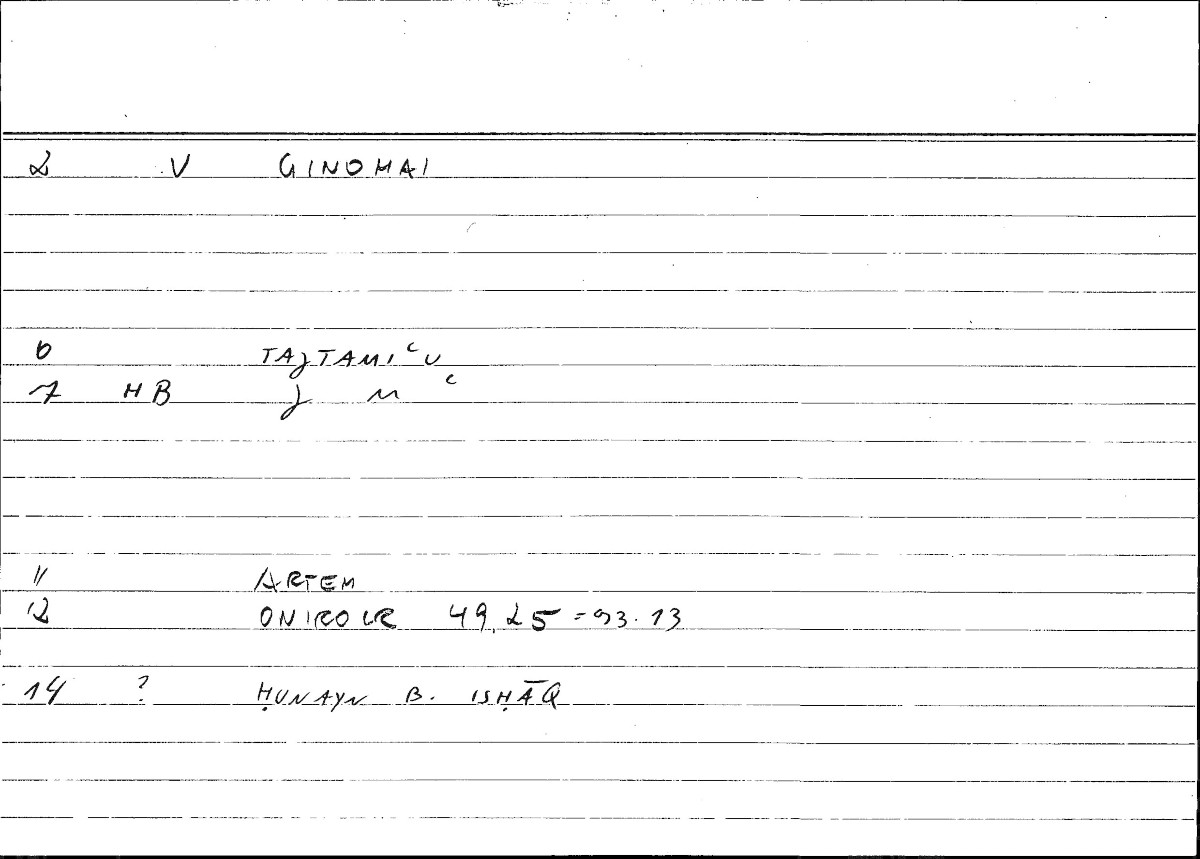 2 V GINOMAI
6 TAJTAMIʿU
7 HB J M ʿ
11 ARTEM
12 ONIROCR 49,25 = 93.13
14 ? ḤUNAYN B. ISḤĀQ